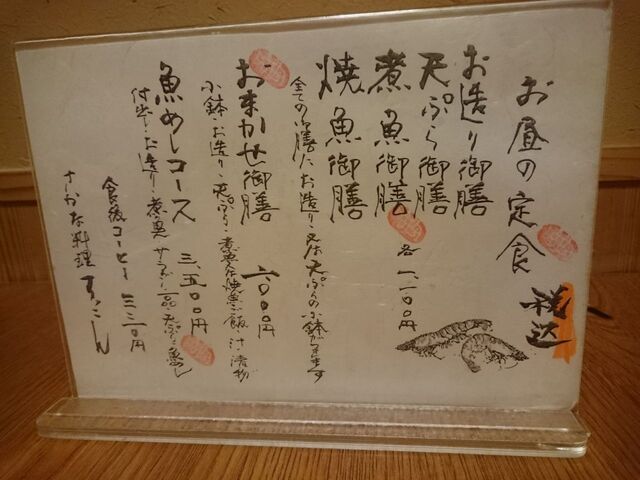 お昼の定食
税込
お造り御膳
天ぷら御膳
煮魚御膳
焼魚御膳
各一、一〇〇円
全ての御膳にお造り・又は天ぷらの小鉢がつきます
おまかせ御膳 一六〇〇円
小鉢・お造り・天ぷら・煮魚又は焼魚・ご飯・汁・漬物
魚めしコース 三、五〇〇円
付出し・お造り・煮魚・サラダ・一品・天ぷら・魚めし
食後コーヒー 三三〇円
さかな料理